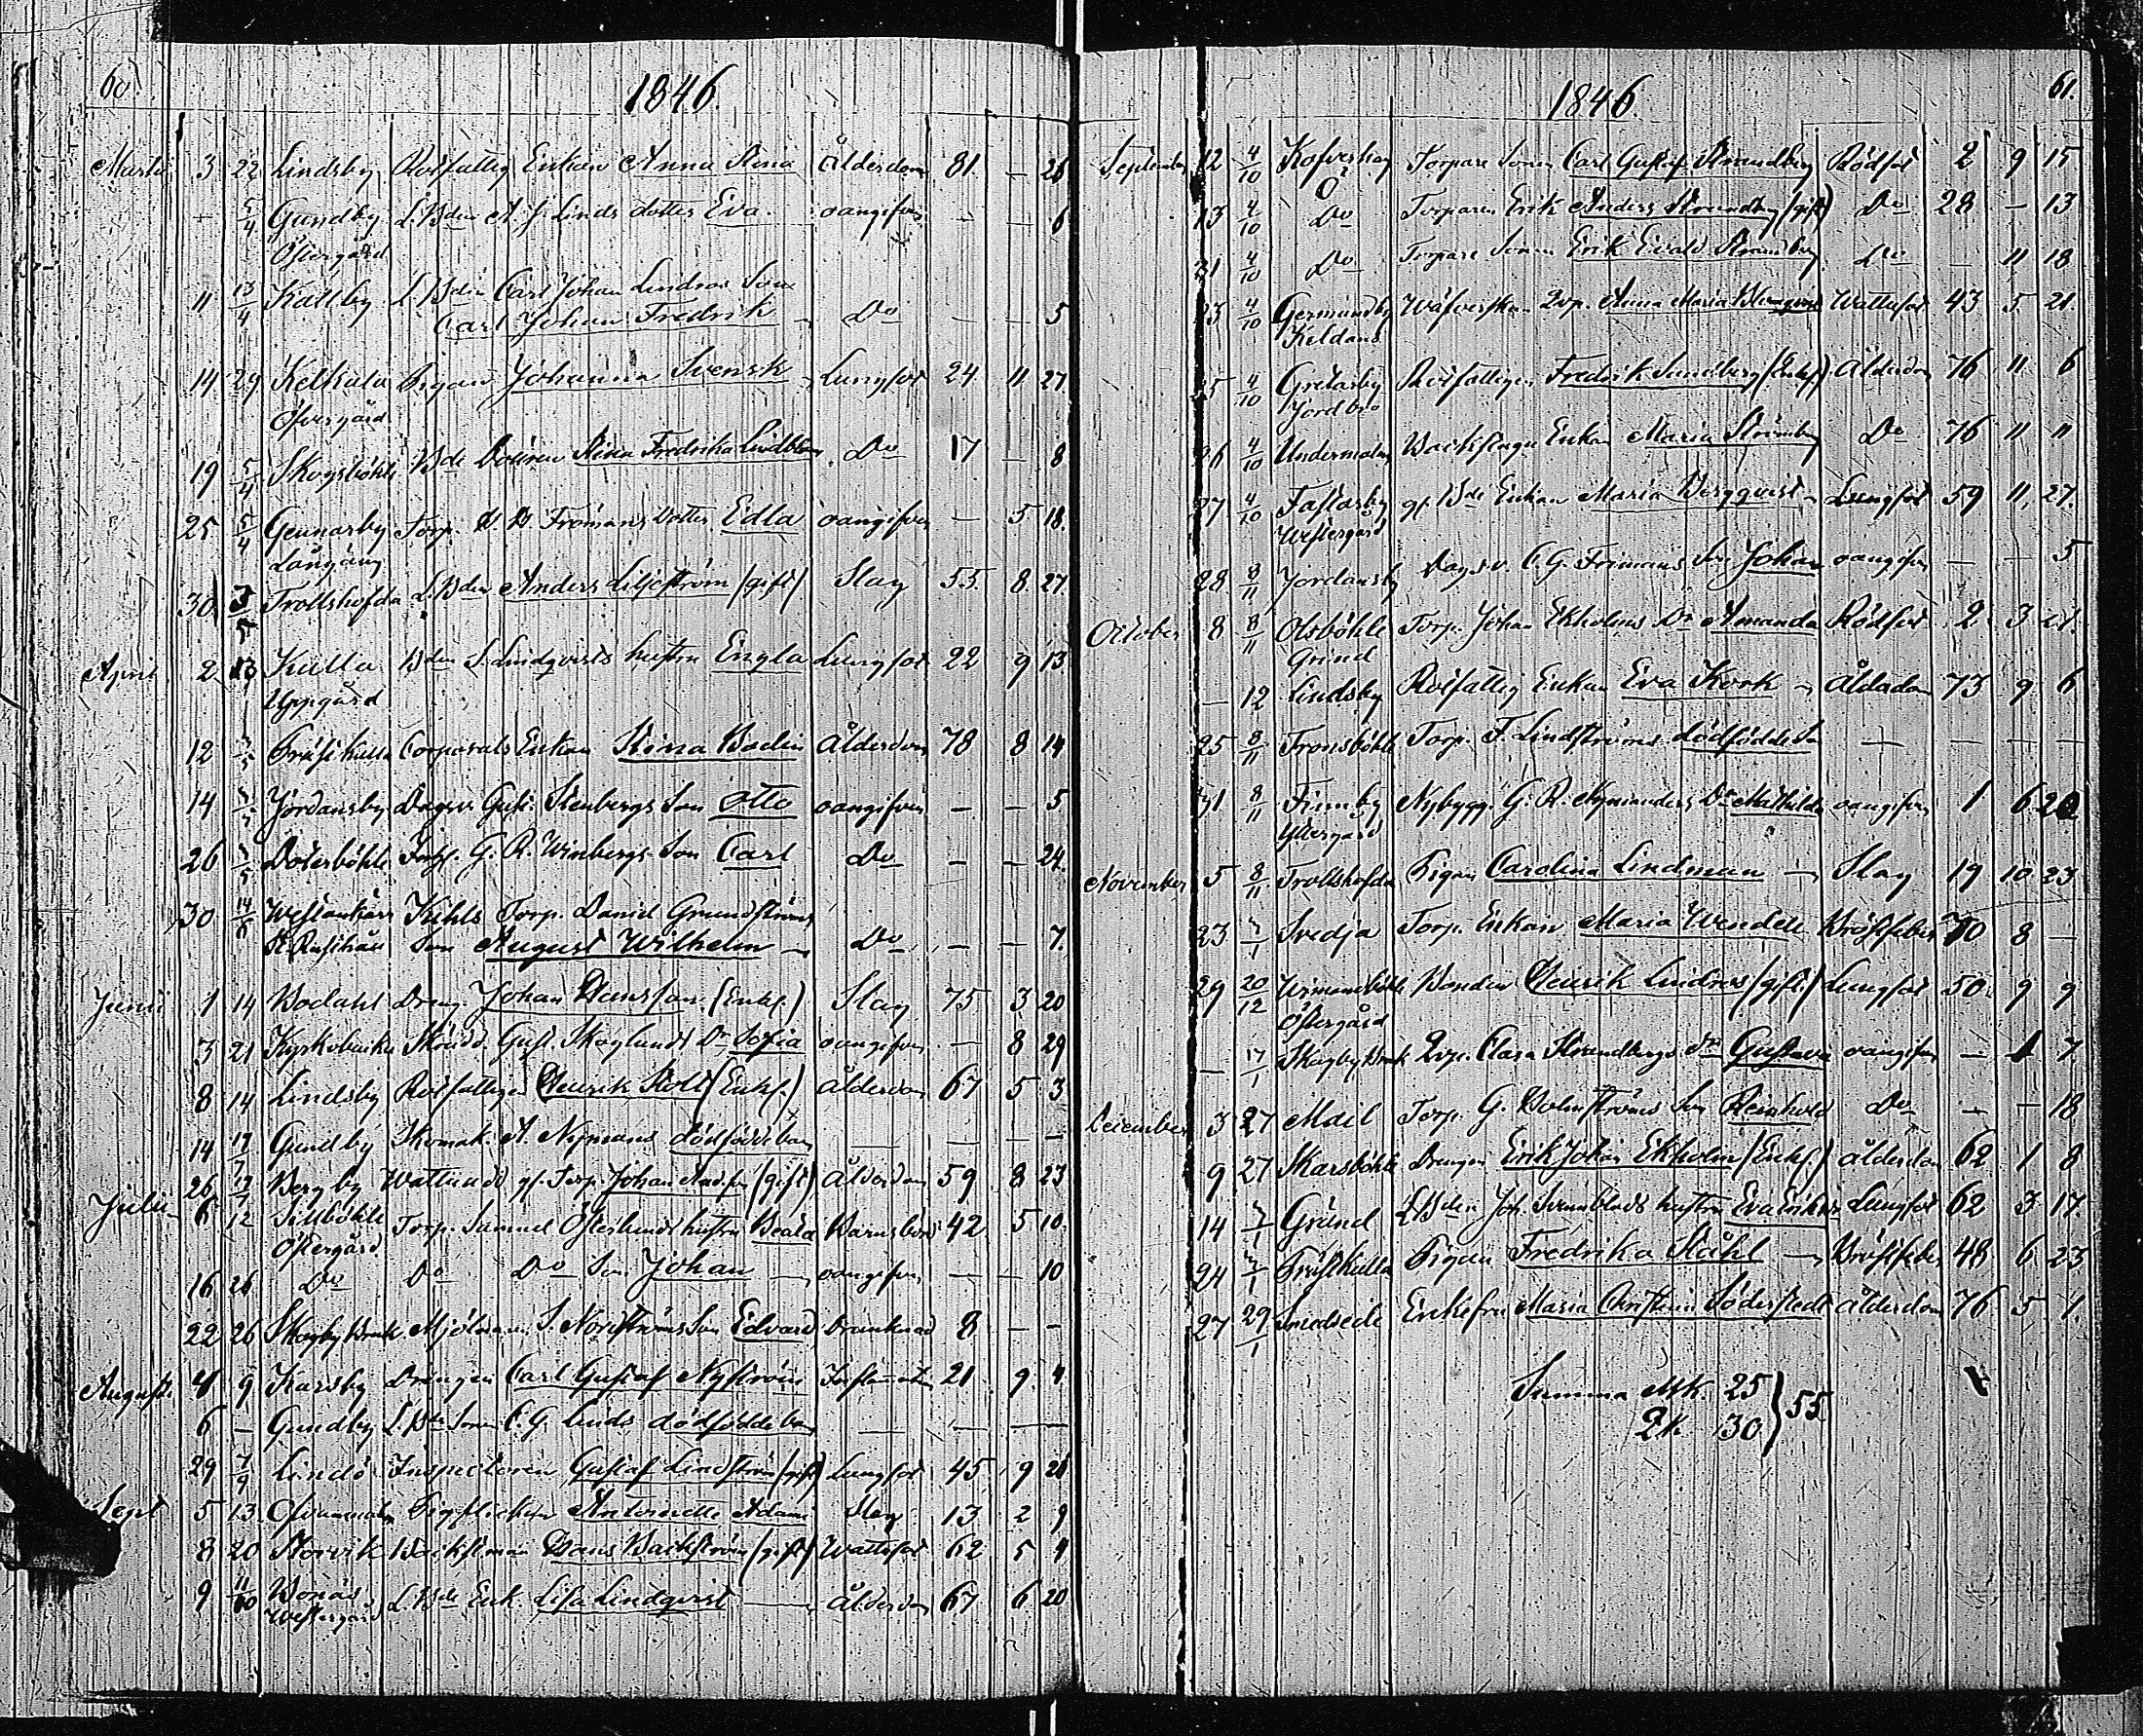 60
1846.
Martii 3 22 Lindsby Rotfattig Enkan Anna Stina Ålderdom 81 — 28
— 5/4 Gundby L.Bden A. J. Linds dotter Eva oangifven — — 6
Östergård
11 13/4 Kattby L.Bden Carl Johan Lindroos Son
Carl Johan Fredrik Do — — 5
14 29 Kelkala Pigan Johanna Svensk Lungsot 24 11 27
Öfvergård
19 5/4 Skogsböhle Bde Dottren Stina Fredrika Lindblom Do 17 — 8
25 5/4 Gennarby Torp. Frömans dotter Edla oangifven — 5 18
Långäng
30 3/5 Trollshofda L.Bden Anders Liljeström (gift) Slag 55 8 27
April 2 13 Kulla Bden S. Lindqvists hustru Engla Lungsot 22 9 13
Uppgård
12 3/5 Träskkulla Corporals Enkan Stina Bodin Ålderdom 78 8 14
14 3/5 Jordansby Dagsv. Gust. Stenbergs Son Otto oangifven — — 5
26 3/5 Dotterböhle Inhs. G. A. Winbergs Son Carl Do — — 24
30 14/6 Westankärr Torp. Daniel Grundströms
Son August Wilhelm Do — — 7
Junii 1 14 Dreng. Johan Hansson (Enkl.) Slag 75 3 20
3 21 Kyrkobacka Gust. Skoglunds Dr Sofia oangifven — 8 29
8 14 Lindsby Rotfattigen Henrik Stolt (Enkl.) Ålderdom 67 5 3
14 17/7 Gundby Skomak. A. Nymans dödfödde barn — — —
26 17/7 Bergby Wattlunds gl. Torp. Johan (gift) Ålderdom 59 8 23
Julii 6 12 Sillböhle Torp. Samuel Österlunds hustru Beata Barnsbörd 42 5 10
Östergård
16 26 Do Do Do Son Johan oangifven — — 10
22 26 Skogby Bruk Mjölnaren S. Nordströms Son Edvard Drunknad 8 — —
Augusti 4 9 Karsby Drengen Carl Gustaf Nyström 21 9 4
6 — Gundby L.Bde Sonen C. G. Linds dödfödde barn — —
29 7/9 Lindö Inspectoren Gustaf Lindström (gift) Lungsot 45 9 28
Sept 5 13 Pigflickan Antoinette Adami Slag 13 2 9
8 20 Storvik Backstman Hans Backström (gift) Wattusot 62 5 4
9 11/10 Bonäs L.Bde Enk. Lisa Lindqvist Ålderdom 67 6 20
Westergård
61.
1846.
September 12 4/10 Kofverhag Torpare Sonen Carl Gustaf Strandberg Rödsot 2 9 15
Ö
13 4/10 Do Torparen Erik Anders Strandberg (gift) Do 28 — 13
21 4/10 Do Torpare Sonen Erik Evald Strandberg Do — 11 18
23 4/10 Germundby Wäfverskan Qvp. Anna Maria Blomqvist Wattusot 43 5 21
Keldans
25 4/10 Gretarby Rotfattigen Fredrik Sandberg (Enkl.) Ålderdom 76 11 6
Jordbro
26 4/10 Undermalm Backstugu Enkan Maria Strömberg Do 76 11 11
27 4/10 Fastarby gl. Bde Enkan Maria Bergqvist Lungsot 59 11 27
Westergård
28 8/11 Jordansby Dagsv. C. G. Frimans Son Johan oangifven — — 5
October 8 8/11 Olsböhle Torp. Johan Ekholms Dr Amanda Rödsot 2 3 21
Grind
— 12 Lindsby Rotfattig Enkan Eva Kock Ålderdom 73 9 6
25 8/11 Tronsböhle Torp. F. Lindströms dödfödde Son — — —
31 8/11 Finnby Nybygg. G. A. Nymanders Dr Mathilda oangifven 1 6 20
Yttergård
November 5 8/11 Trollshofda Pigan Carolina Lindman Slag 19 10 23
23 3/1 Svedja Torp. Enkan Maria Wendell Bröstfeber 70 8 —
29 20/12 Bonden Henrik Lindroos (gift) Lungsot 50 9 9
Östergård
— 17/1 Skogby Bruk Qvp. Clara Strandbergs dr Gustava oangifven — 1 7
December 3 27 Mail Torp. G. Holmströms Son Reinhold Do — — 18
9 27 Skarsböhle Drengen Erik Johan Ekholm (Enkl.) Ålderdom 62 1 8
14 3/1 Gründ L.Bden Joh. Svanblads hustru Eva Lungsot 62 3 17
24 3/1 Träskkulla Pigan Fredrika Ståhl Bröstfeber 48 6 23
27 29/1 Smedsede Enkefru Maria Christina Söderstedt Ålderdom 76 5 1
Summa Mk. 25 } 55
Qk. 30